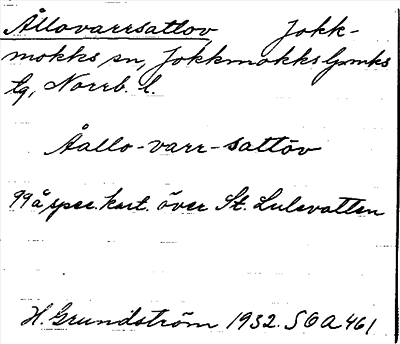 Ållovarrsattov Jokk-
mokks sn, Jokkmokks lpmks
tg, Norrb. l.
Åallo-varr-sattōv
99 å spec. kart. över St. Lulevatten
H. Grundström 1932. SOA 461